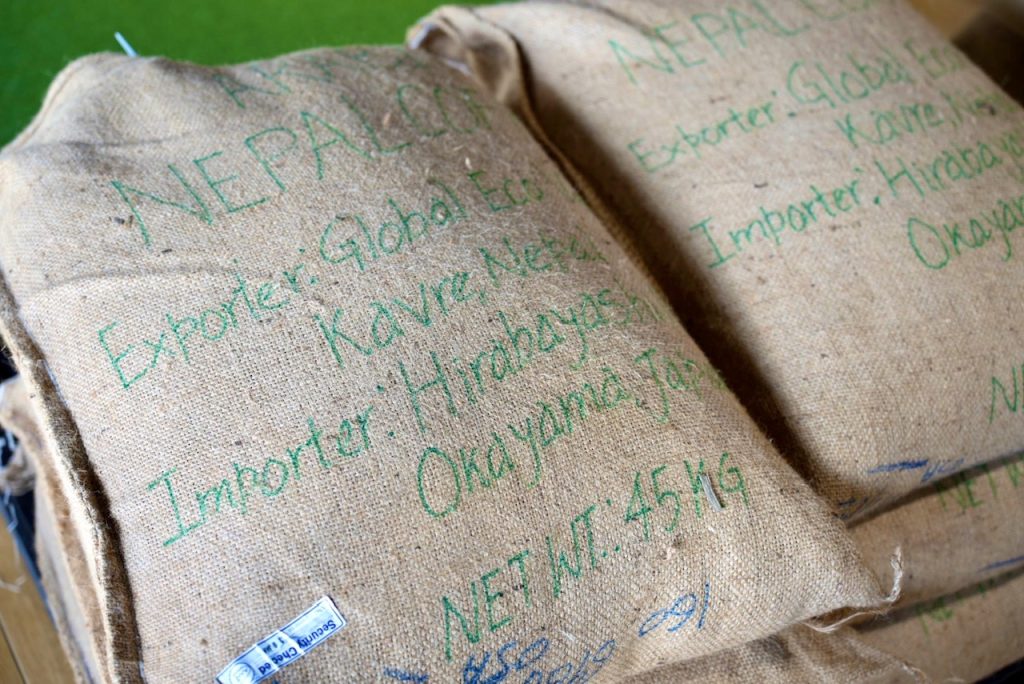 NEPAL COF
Exporter: Global Eco
Kavre, Nepal
Importer: Hirabayashi
Okayama, Japa
NET WT.: 45 KG
Security Checked
NEPAL CO
Exporter: Global Eco
Kavre, N
Importer: Hirabaya
Okayam
N
NET W